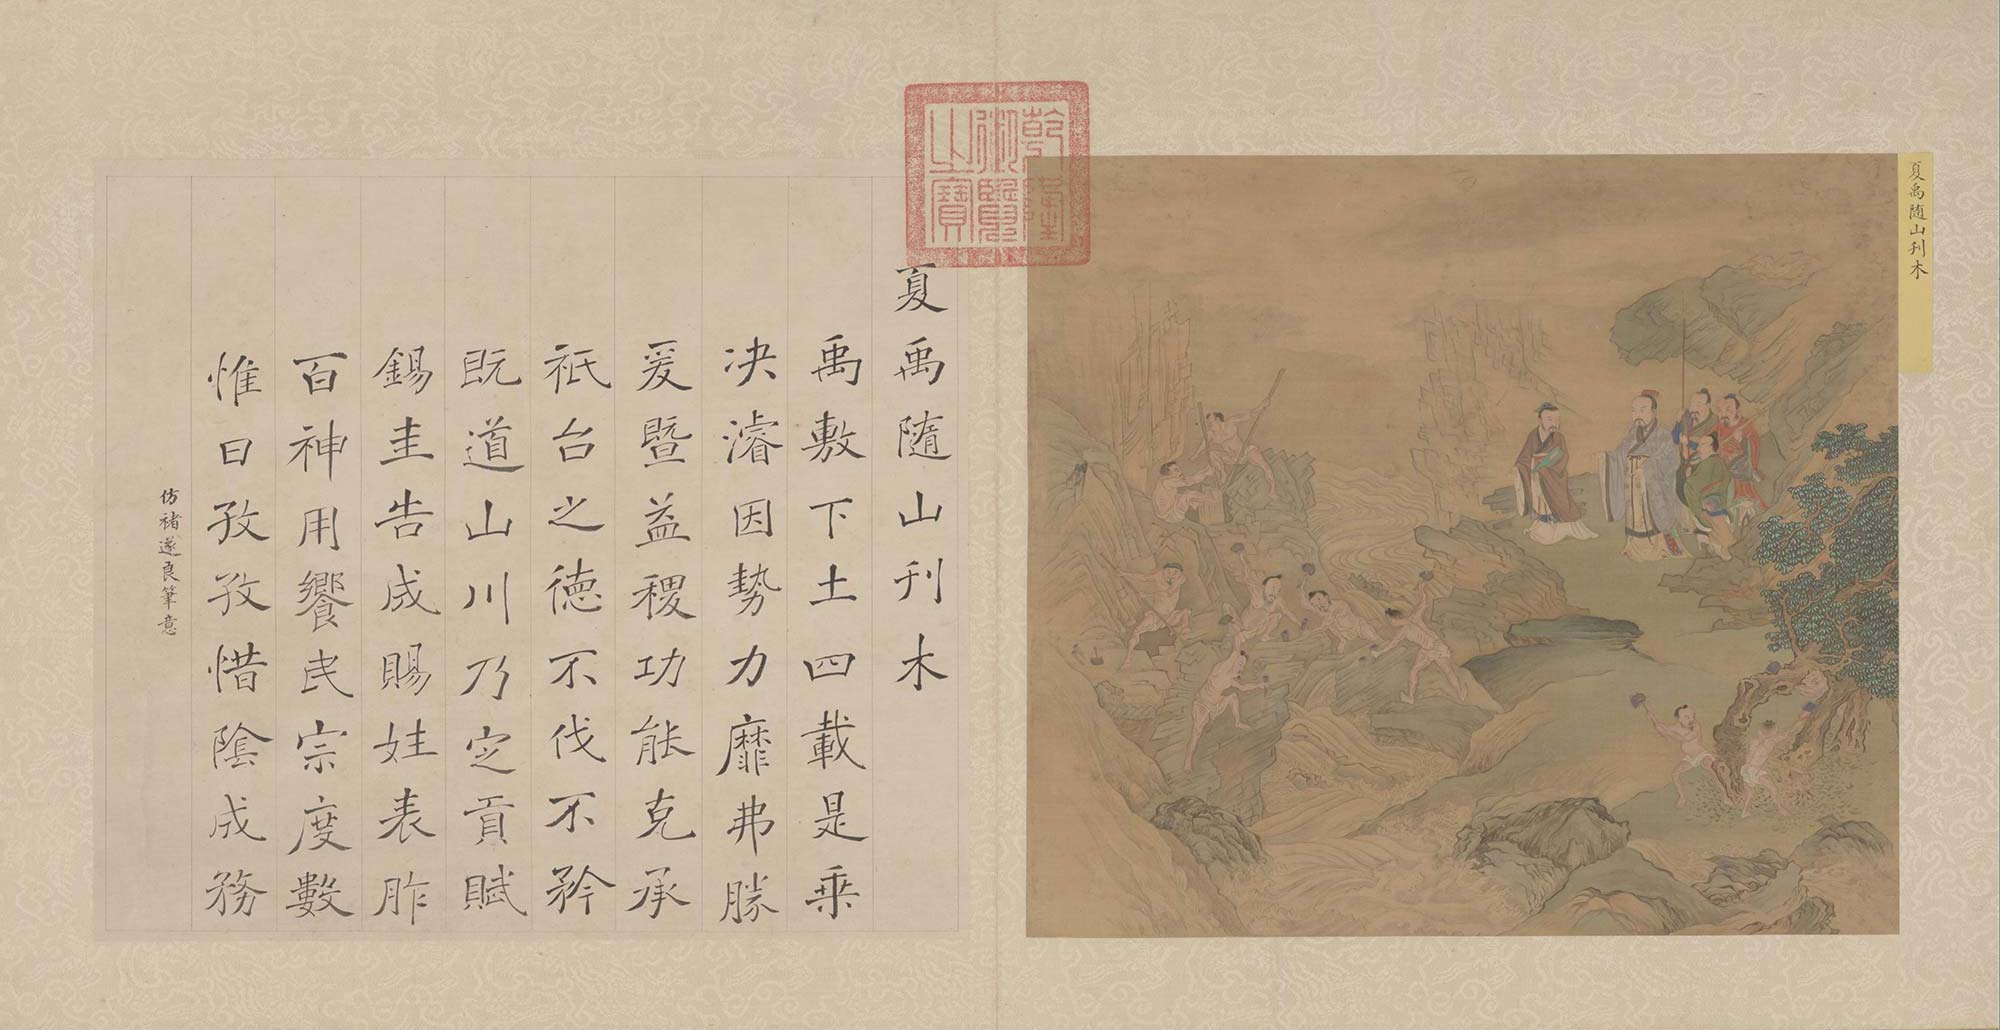 夏禹随山刊木
乾隆御覽之寶
夏禹隨山刊木
禹敷下土四載是乘
决濬因勢力靡弗勝
爰暨益稷功能克承
祇台之德不伐不矜
既道山川乃定貢賦
錫圭告成賜姓表胙
百神用饗民宗度數
惟日孜孜惜陰成務
仿褚遂良筆意